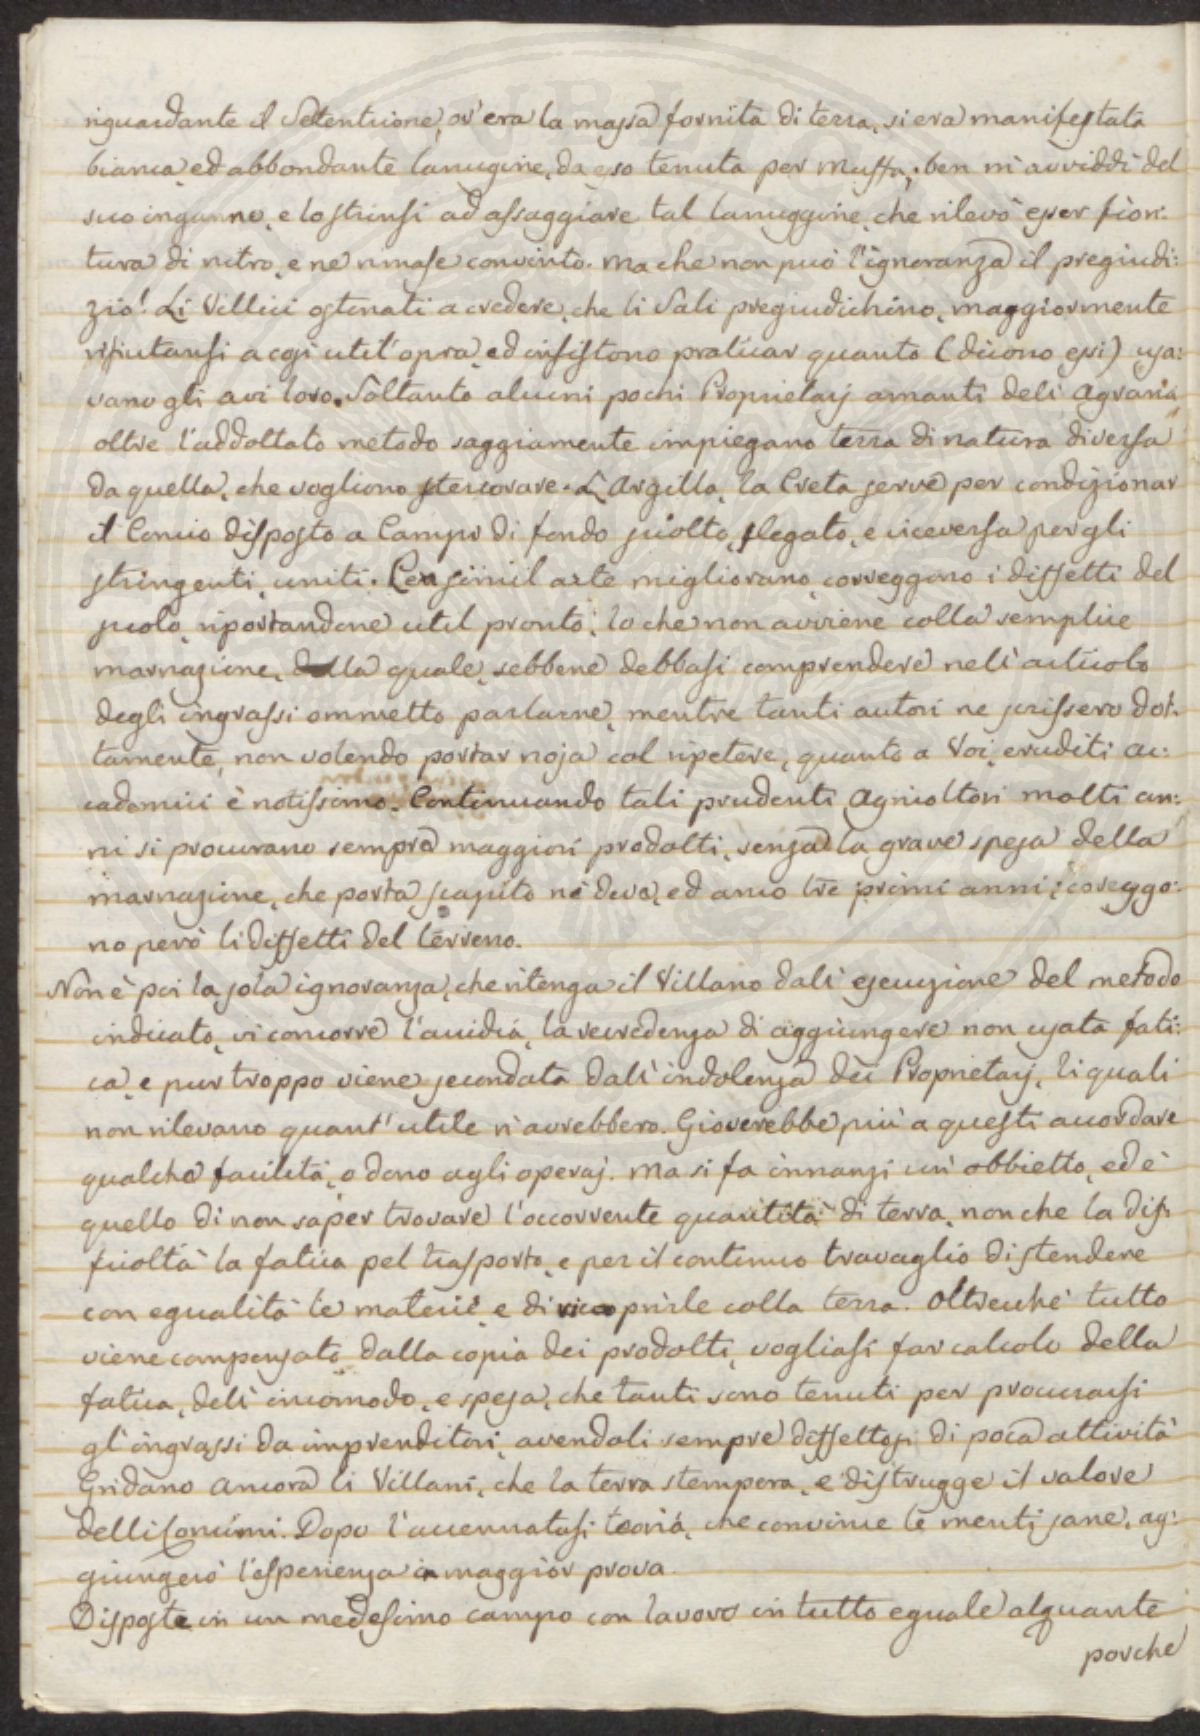 riguardante il Setentrione, ov'era la massa fornita di terra, si era manifestata
bianca, ed abbondante lanugine, da esso tenuta per muffa; ben m'avviddi del
suo inganno, e lo strinsi ad assaggiare tal lanuggine, che rilevò esser fiori:
tura di nitro, e ne rimase convinto. Ma che non può l'ignoranza il pregiudi:
zio! Li Villici ostinati a credere, che li Sali pregiudichino, maggiormente
rifiutansi a cosi util'opra, ed insistono praticar quanto (dicono essi) usa:
vano gli avi loro. Soltanto alcuni pochi Proprietarj amanti dell'Agraria
oltre l'addottato metodo saggiamente impiegano terra di natura diversa
da quella, che vogliono stercorare. L'Argilla, la Creta serve per condizionar
il Concio disposto a Campi di fondo sciolto, slegato, e viceversa per gli
stringenti, uniti. Con simil arte migliorano, correggono i diffetti del
suolo, riportandone util pronto; lo che non avviene colla semplice
marnazione, della quale, sebbene debbasi comprendere nell'articolo
degli ingrassi ommetto parlarne, mentre tanti autori ne scrissero dot:
tamente, non volendo portar noja col ripetere, quanto a Voi eruditi ac:
cademici è notissimo. Continuando tali prudenti Agricoltori molti an:
ni si procurano sempre maggiori prodotti, senza la grave spesa della
marnazione, che porta scapito ne due, ed anco tre primi anni; coreggo:
no però li diffetti del terreno.
Non è poi la sola ignoranza, che ritenga il Villano dall'esecuzione del metodo
indicato, vi concorre l'accidia, la recredenza di aggiungere non usata fati:
ca, e pur troppo viene secondata dall'indolenza dei Proprietarj, li quali
non rilevano quant'utile n'avrebbero. Gioverebbe più a questi accordare
qualche facilità, o dono agli operaj. Ma si fa innanzi un'obbietto, ed è
quello di non saper trovare l'occorrente quantità di terra, non che la dif:
ficoltà la fatica pel trasporto, e per il continuo travaglio di stendere
con egualità le materie, e di ricoprirle colla terra. Oltrecché tutto
viene compensato dalla copia dei prodotti, vogliasi far calcolo della
fatica, dell'incomodo, e spesa, che tanti sono tenuti per procurarsi
gl'ingrassi da imprenditori, avendoli sempre diffettosi di poca attività
Gridano ancora li Villani, che la terra stempera, e distrugge il valore
delli Concimi. Dopo l'accennatasi teoria, che convince le menti sane, ag:
giungerò l'esperienza in maggior prova.
Disposte in un medesimo campo con lavoro in tutto eguale alquante
porche